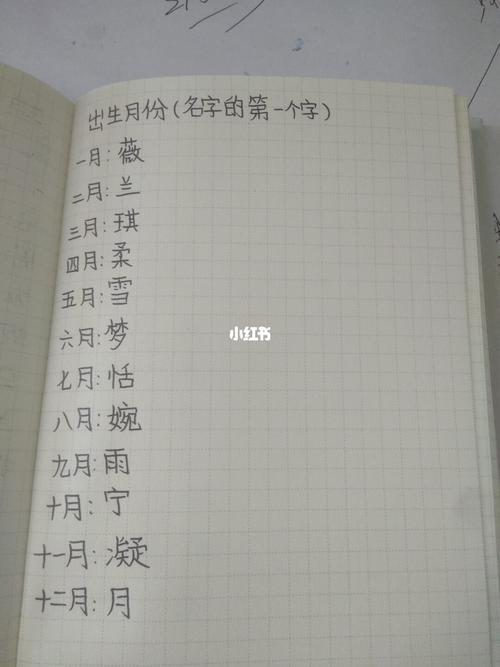 出生月份(名字的第一个字)
一月:薇
二月:兰
三月:琪
四月:柔
五月:雪
六月:梦
小红书
七月:恬
八月:婉
九月:雨
十月:宁
十一月:凝
十二月:月